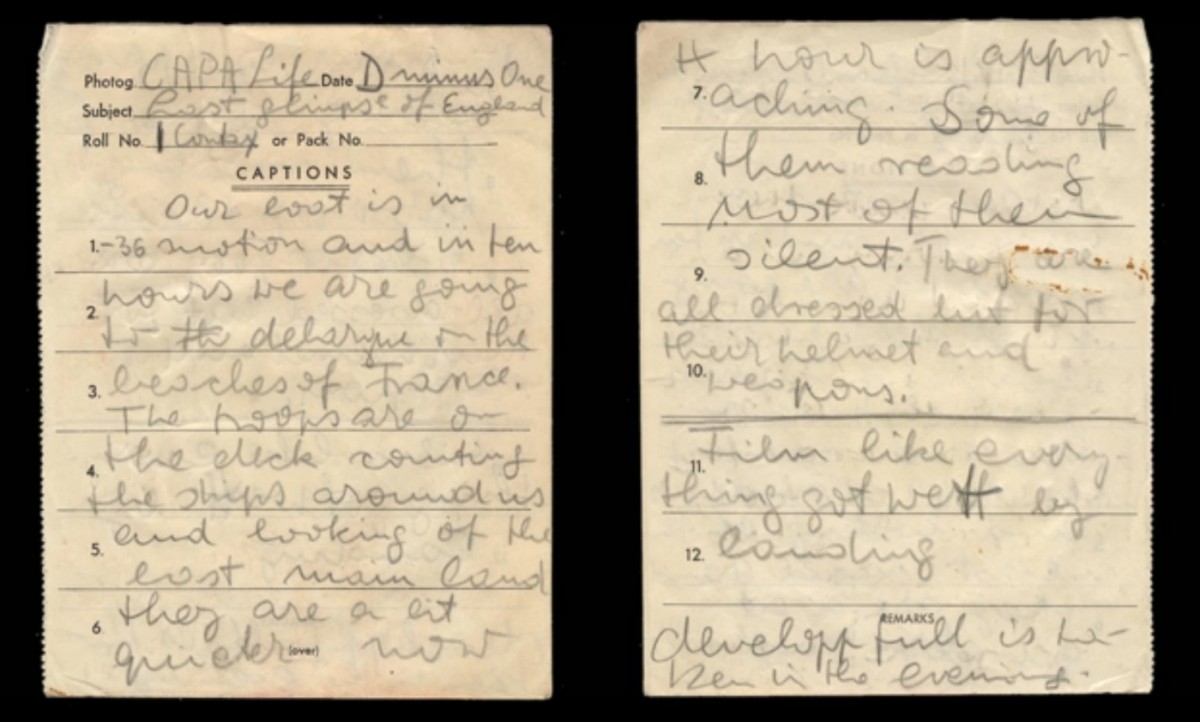 Photog. CAPA Life Date D minus One
Subject Last glimpse of England
Roll No. 1 Contax or Pack No.
CAPTIONS
Our boat is in
1.-36 motion and in ten
hours we are going
2. to the debarque on the
3. beaches of France.
The troops are on
4. the deck counting
the ships around us
5. and looking of the
last main land
6. they are a bit
quicker (over) now
H hour is appro-
7. aching. Some of
8. them reading
Most of them
9. silent. They are
all dressed but for
10. their helmet and
weapons.
11. Film like every-
thing got wett by
12. landing
REMARKS
developp full is ta-
ken in the evening.